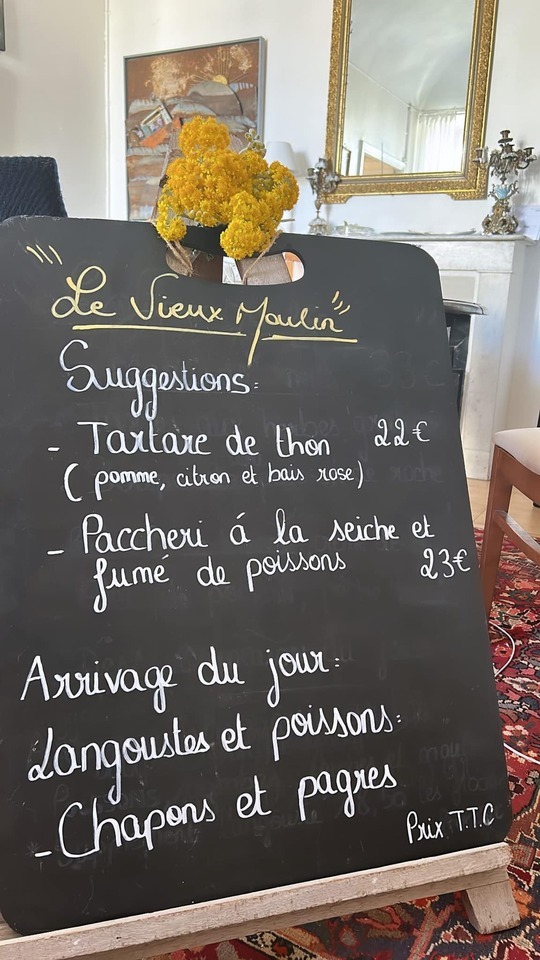 "Le Vieux Moulin"
Suggestions:
- Tartare de thon 22€
( pomme, citron et bais rose)
- Paccheri á la seiche et
fumé de poissons 23€
Arrivage du jour:
Langoustes et poissons:
- Chapons et pagres
Prix T.T.C